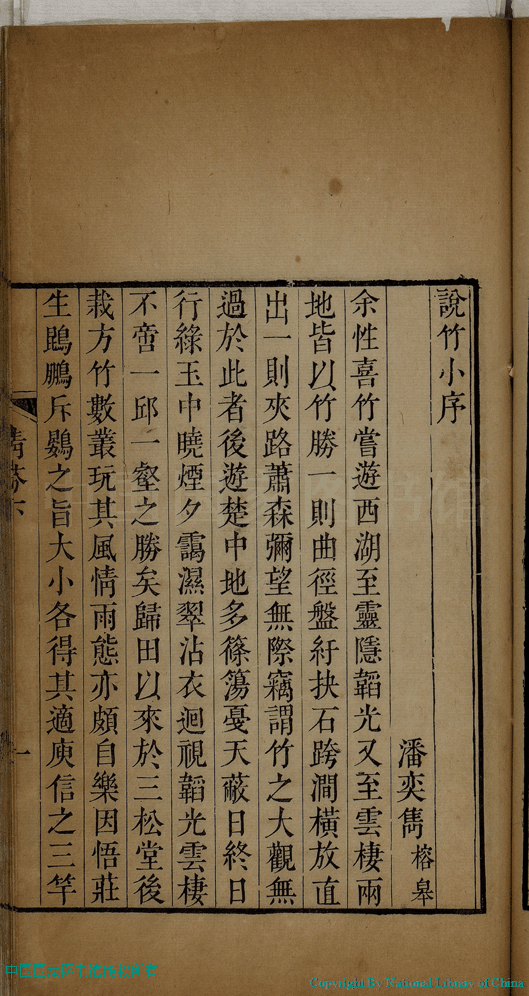 說竹小序
潘奕雋 榕皋
余性喜竹嘗遊西湖至靈隱韜光又至雲棲兩
地皆以竹勝一則曲徑盤紆抉石跨澗橫放直
出一則夾路蕭森彌望無際竊謂竹之大觀無
過於此者後遊楚中地多篠簜戞天蔽日終日
行綠玉中曉煙夕靄濕翠沾衣迴視韜光雲棲
不啻一邱一壑之勝矣歸田以來於三松堂後
栽方竹數叢玩其風情雨態亦頗自樂因悟莊
生鵾鵬斥鷃之旨大小各得其適庾信之三竿
一
Copyright By National Library of China